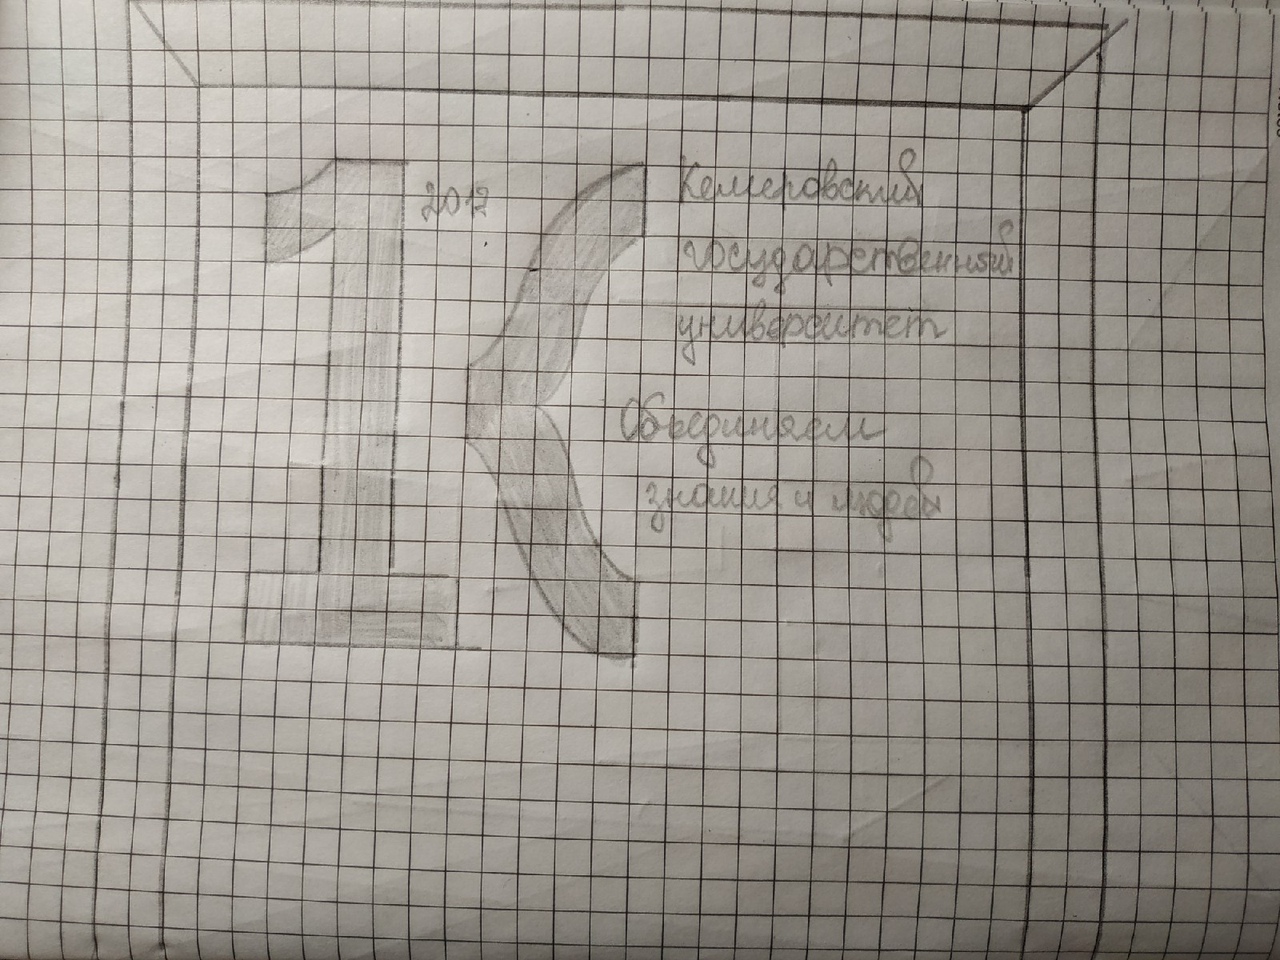 1К
2012
Кемеровский
государственный
университет
Объединяем
знания и людей